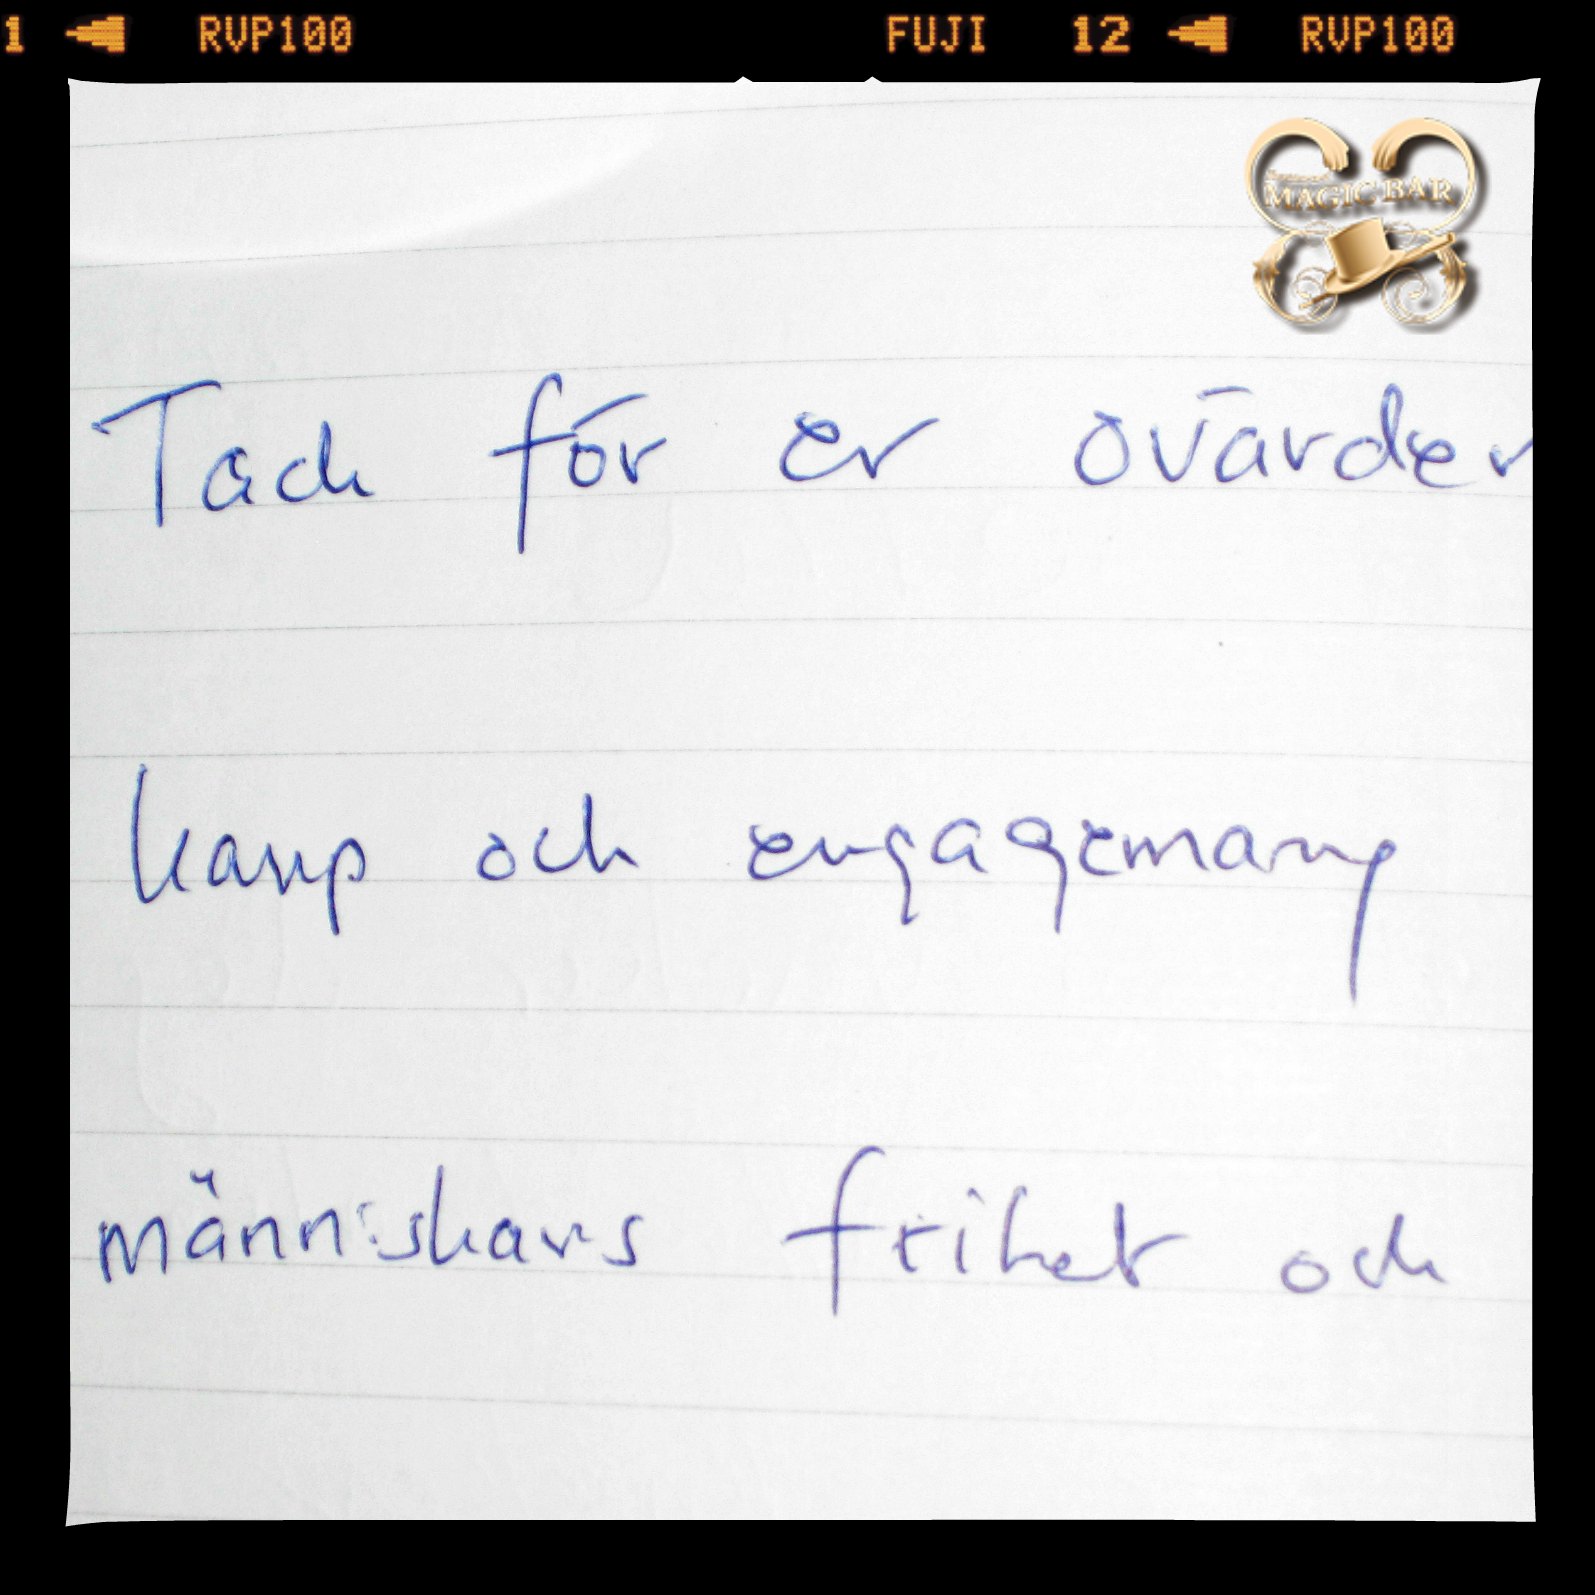 1 RVP100 FUJI 12 RVP100
MAGIC BAR
Tack för er ovärder
kamp och engagemang
människans frihet och